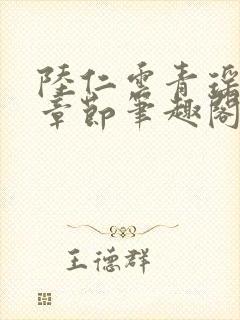 陸仁雲青瑶
章節筆趣閣
王德群